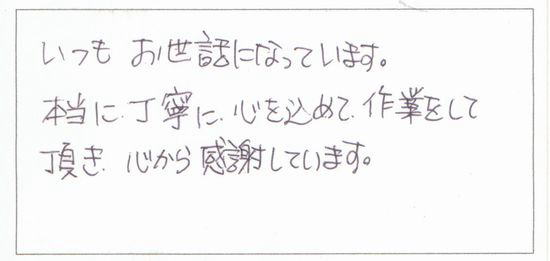 いつも お世話になっています。
本当に、丁寧に、心を込めて、作業をして
頂き、心から感謝しています。